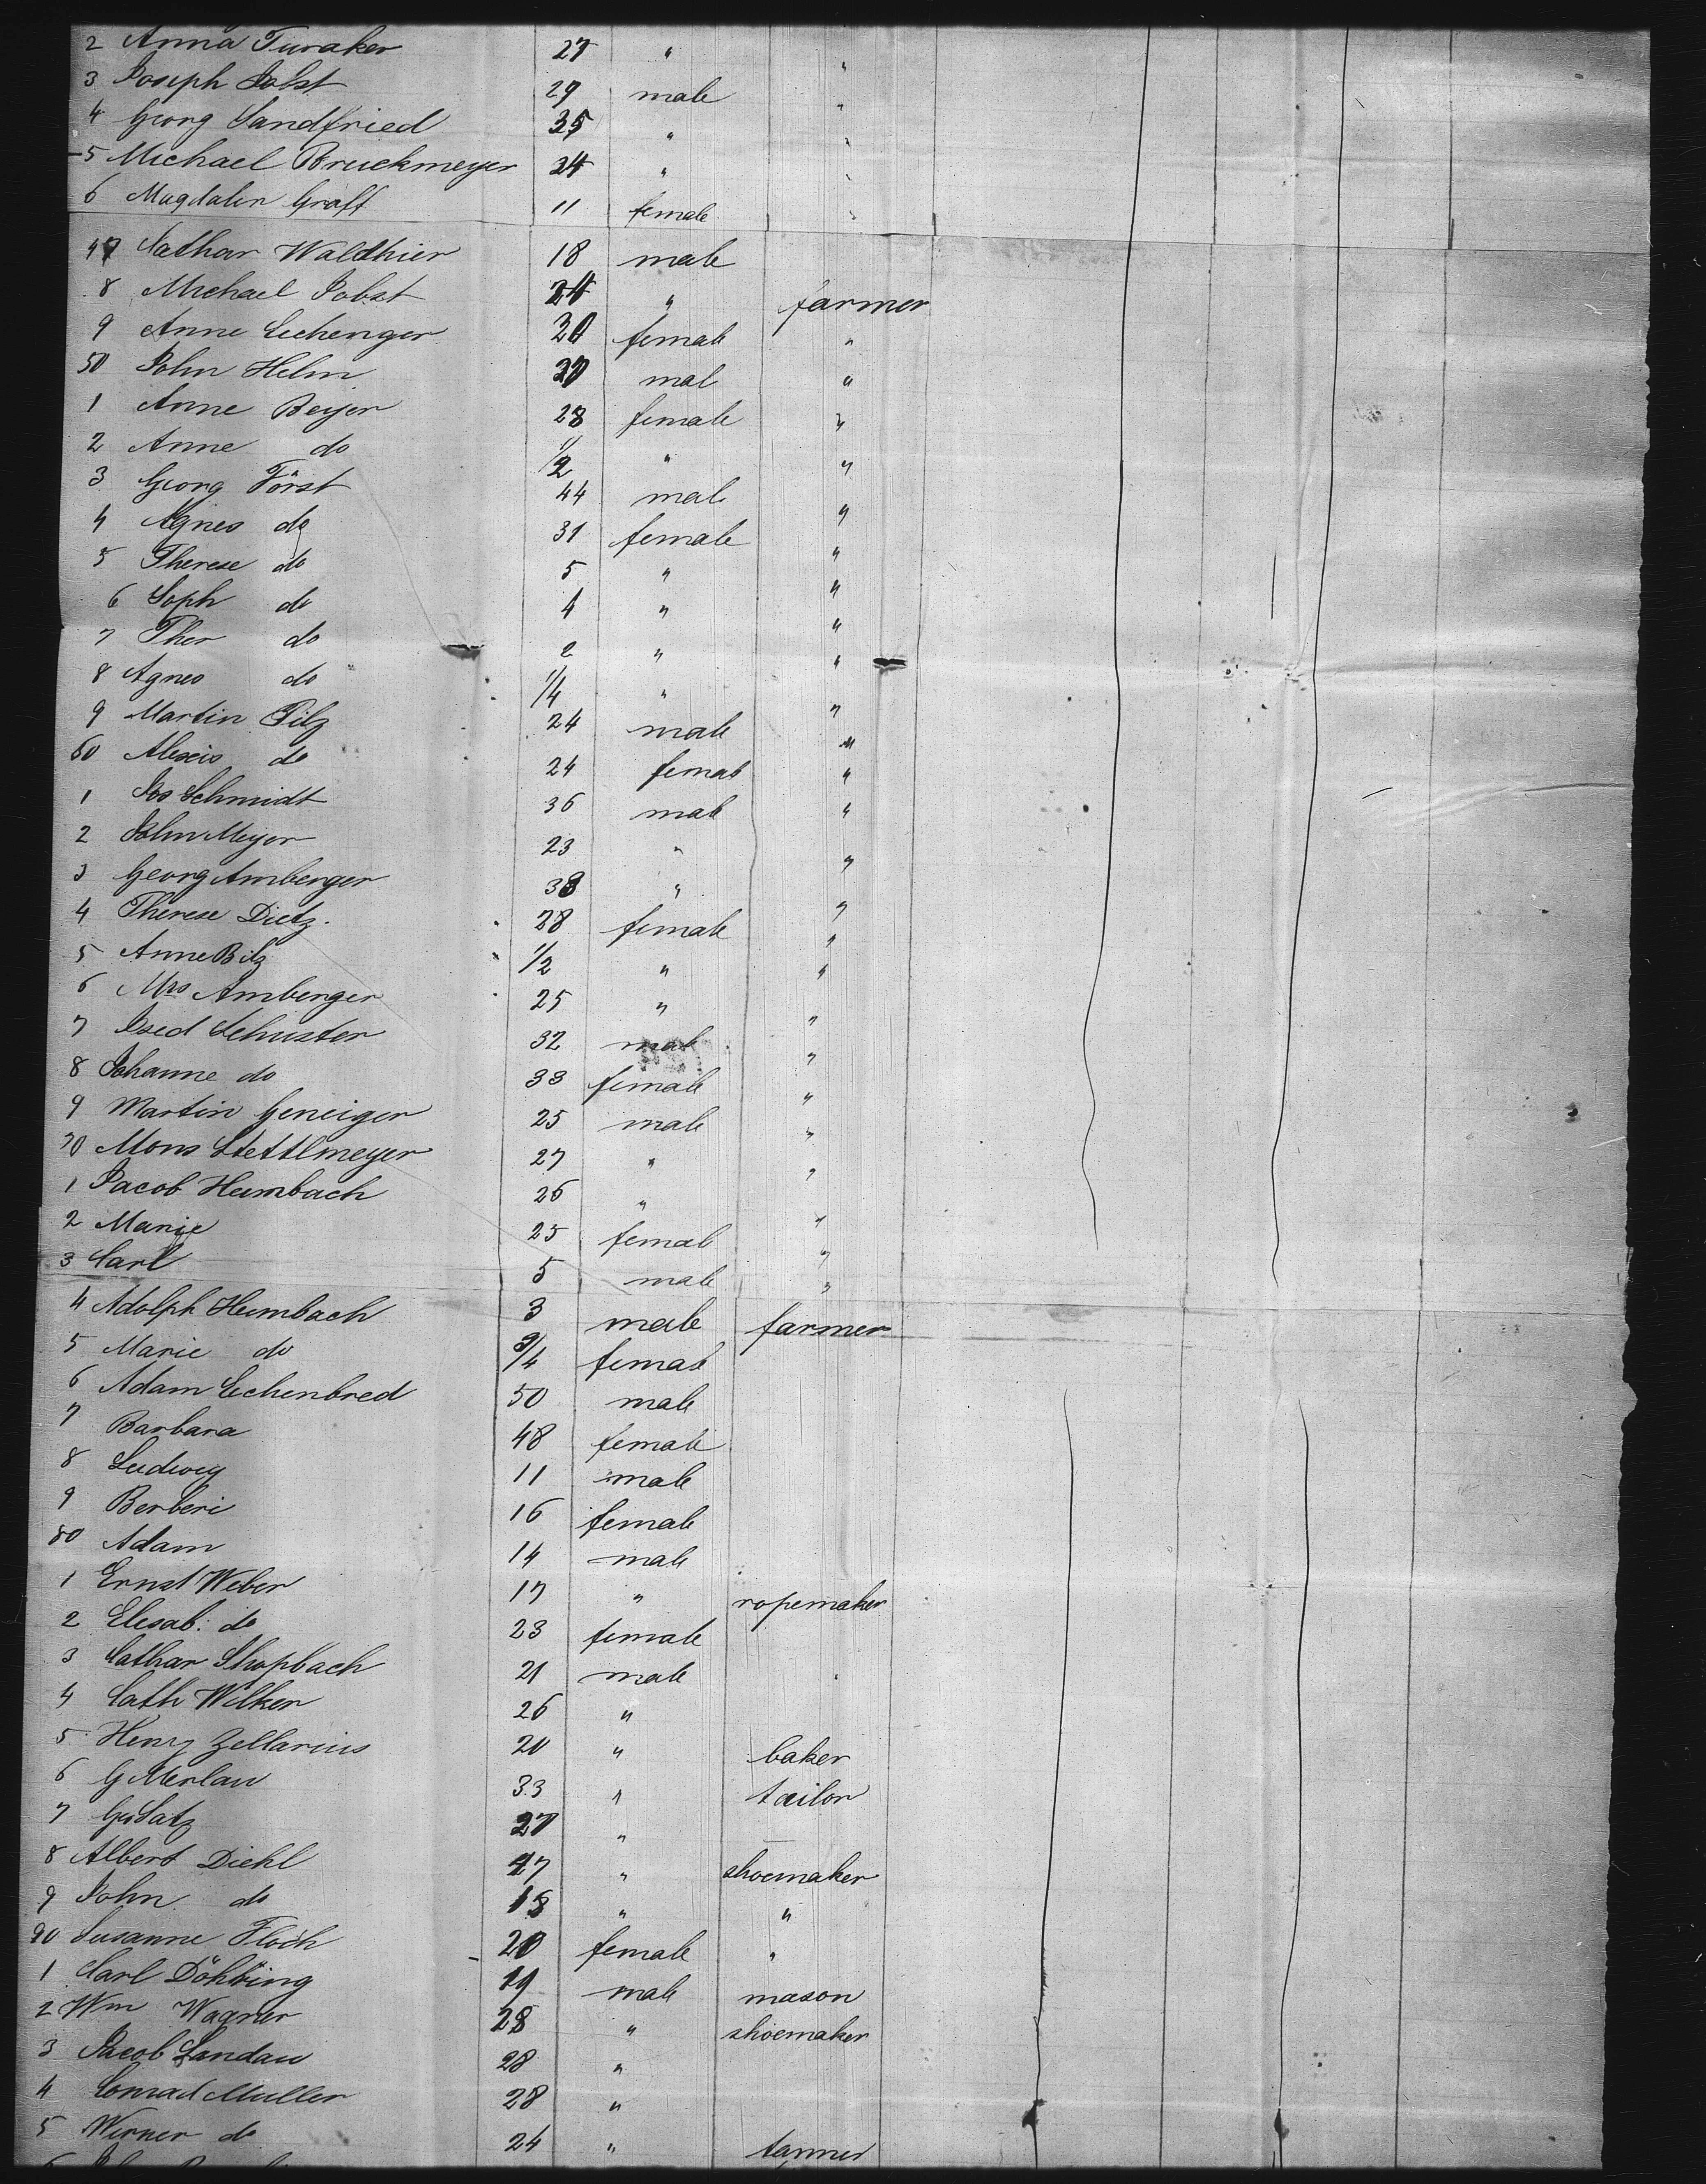 2 Anna Turaker 27 "  "
3 Joseph Pobst 29 male "
4 Georg Sandfried 35 " "
5 Michael Bruckmeyer 24 " "
6 Magdalen Graff 11 female "
47 Cathar Waldhier 18 male
8 Michael Pobst 24 " farmer
9 Anne Eichenger 30 female "
50 John Helm 27 mal "
1 Anne Beyer 28 female "
2 Anne do 1/2 " "
3 Georg Först 44 male "
4 Agnes do 31 female "
5 Therese do 5 " "
6 Soph do 4 " "
7 Ther do 2 " "
8 Agnes do 1/4 " "
9 Martin Pilz 24 male "
60 Alexis do 24 female "
1 Jos Schmidt 36 male "
2 John Meyer 23 " "
3 Georg Amberger 38 " "
4 Therese Dietz. 28 female "
5 Anne Bilz 1/2 " "
6 Mrs Amberger 25 " "
7 Schuster 32 male "
8 Johanne do 33 female "
9 Martin Geneiger 25 male "
70 Mons Stettlmeyer 27 " "
1 Jacob Heimbach 26 " "
2 Marie 25 female "
3 Carl 5 male "
4 Adolph Heimbach 3 male farmer
5 Marie do 3/4 female
6 Adam Eichenbred 50 male
7 Barbara 48 female
8 Ludwig 11 male
9 Berberi 16 female
80 Adam 14 male
1 Ernst Weber 17 " ropemaker
2 Elesab. do 23 female
3 Cathar Shopbach 21 male
4 Cath Wilker 26 "
5 Henry Zellarius 20 " baker
6 G Merlau 33 " tailor
7 27 "
8 Albert Diehl 27 " shoemaker
9 John do 18 " "
90 Susanne Floch 20 female "
1 Carl Döhbing 19 male mason
2 Wm Wagner 28 " shoemaker
3 Jacob Landau 28 "
4 Conrad Muller 28 "
5 Werner do 24 " tanner